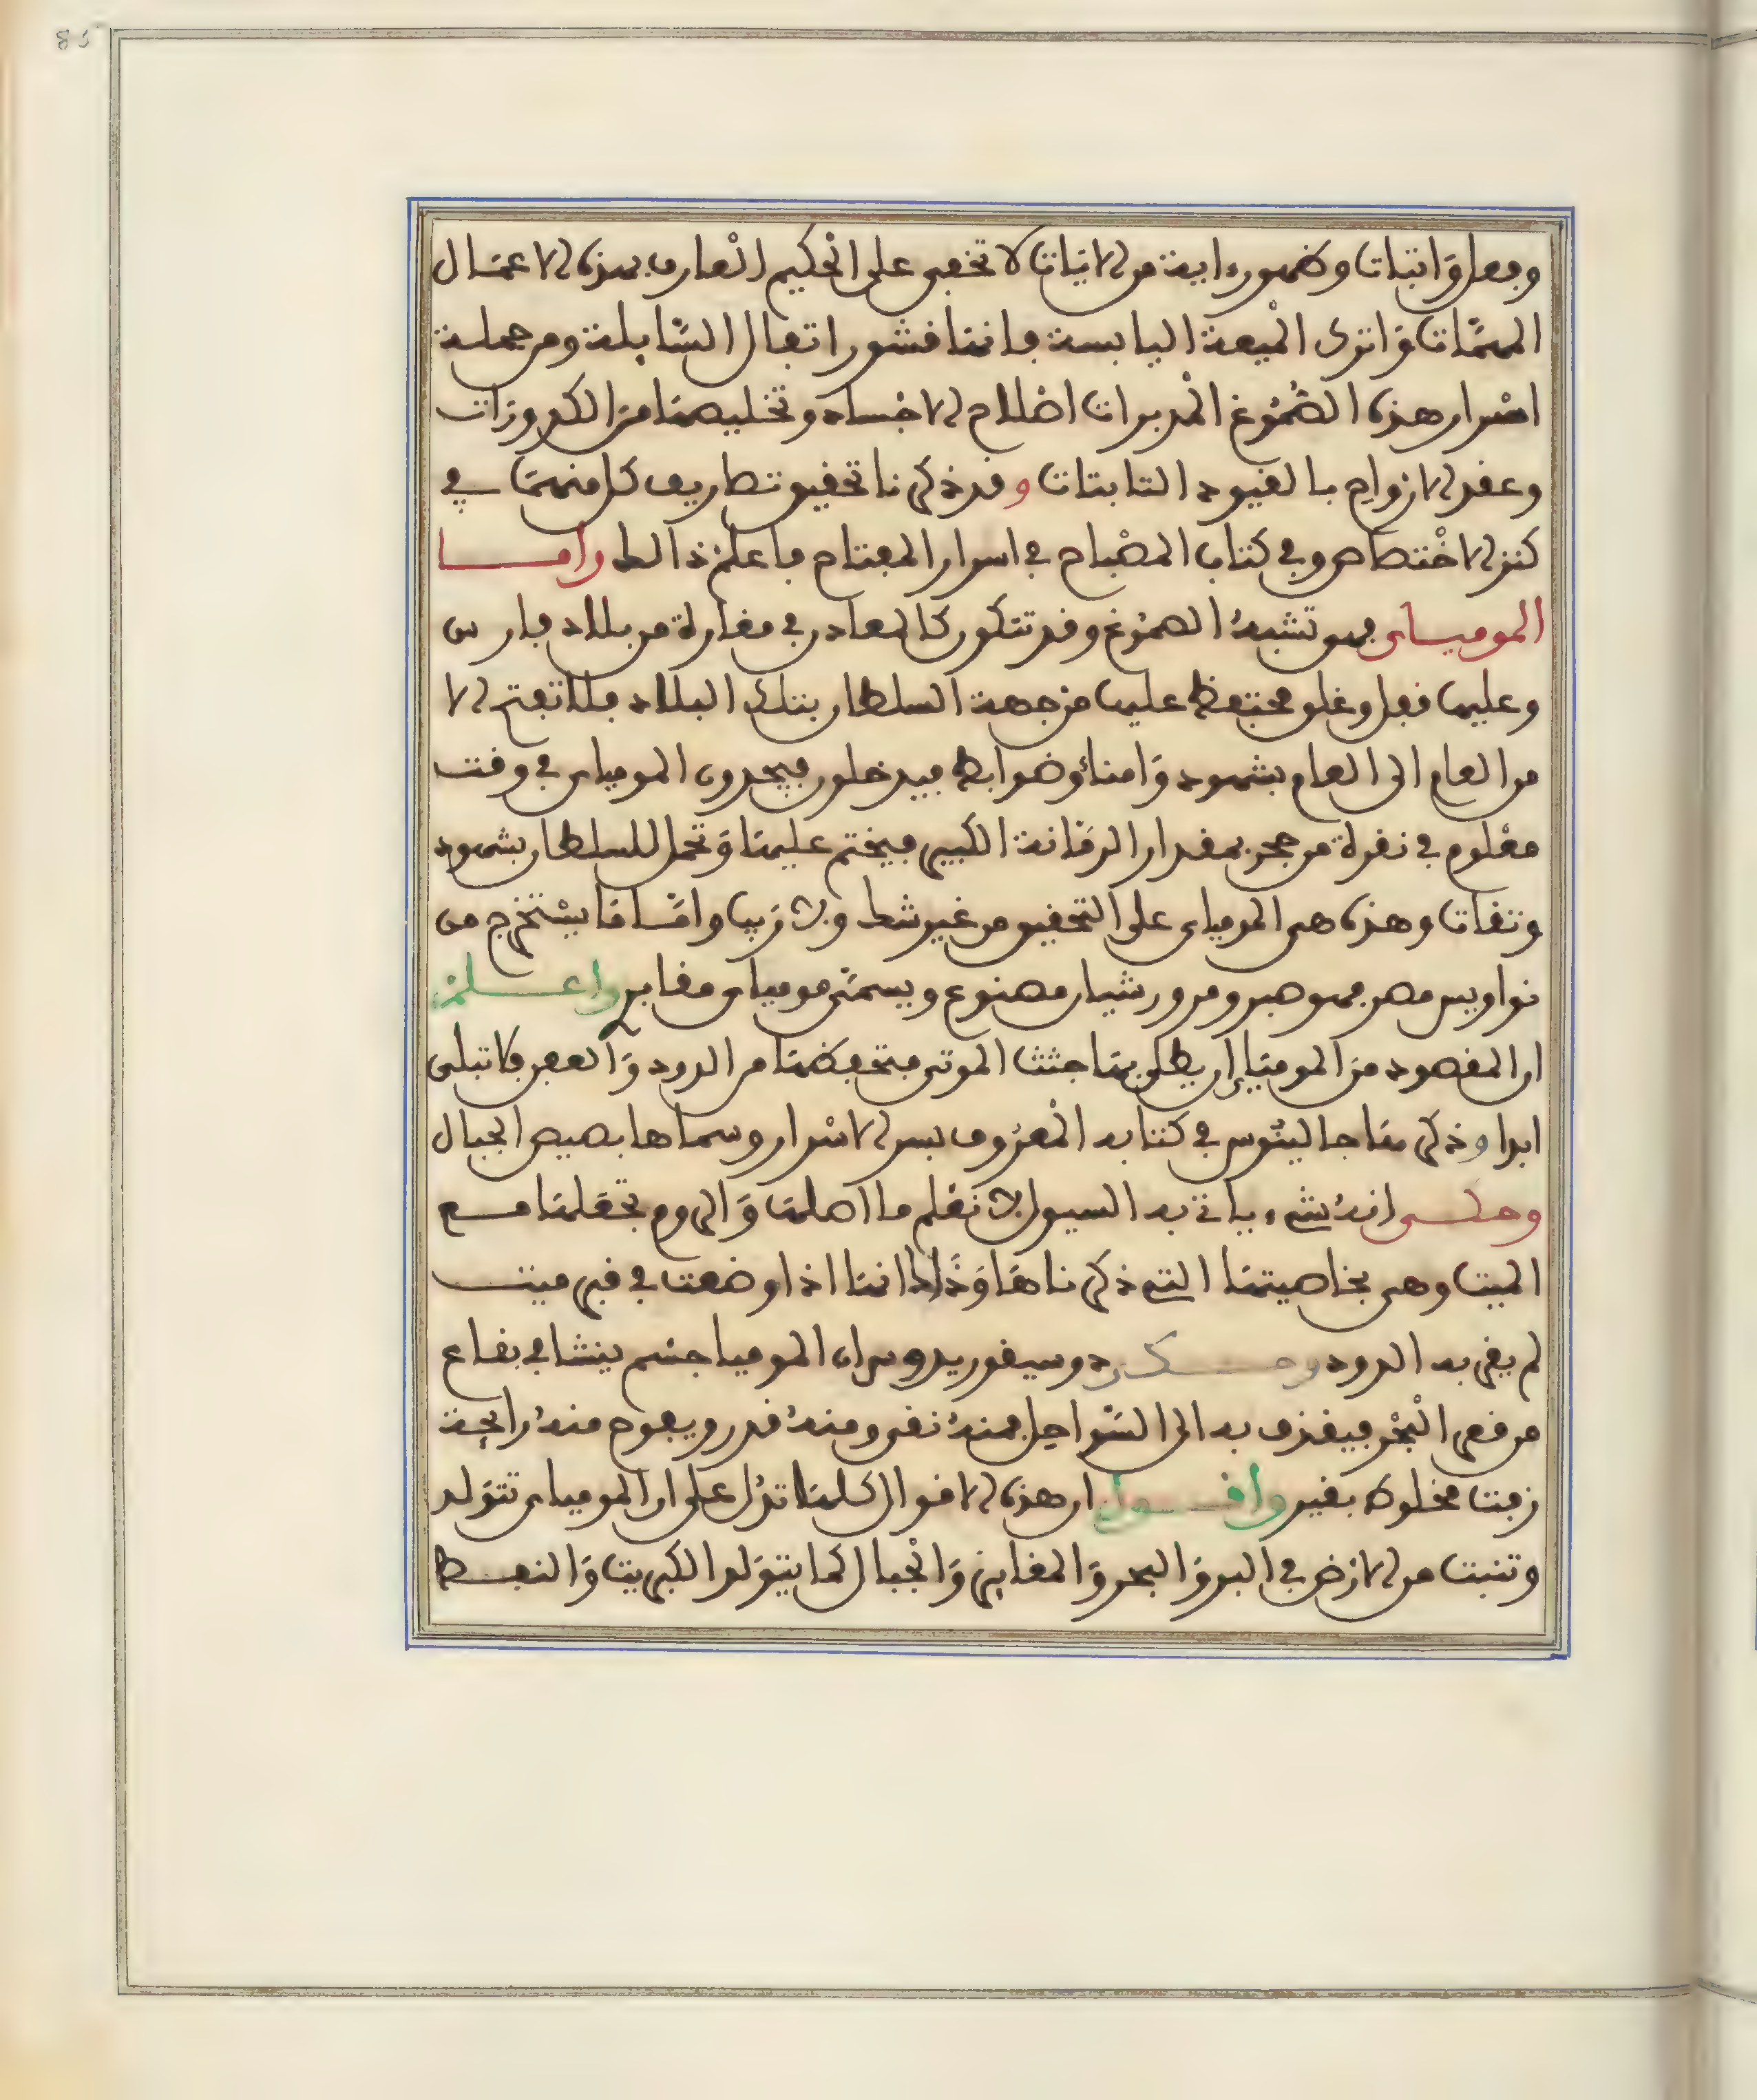 85
وفعل واثبات وظهور ءاية من الايات لا تخفى على الحكيم العارف بهذه الاعمال
المهمّات واترك الميعة اليابسة فانها فشور اتفال السّايلة ومن جملة
اسرار هذه الصموغ المدبرات اصلاح الاجساد وتخليصها من الكدورات
وعقد الارواح بالقيود الثابتات وقد ذكرنا تحقيق تصاريف كل منهما في
كنز الاختصاص وفي كتاب المصباح في اسرار المفتاح فاعلم ذالط واما
المومياى فهو تشبه الصموغ وقد تتكون كالمعادن في مغارة من بلاد فارس
وعليها قفل وغلو محتفظ عليها من جهة السلطان بتلك البلاد فلا تفتح الا
من العام الى العام بشهود وامناء وضوابط فيدخلون فيجدون المومياى في وقت
معلوم في نقرة من حجر بمقدار الرمانة الكبيرة فيختم عليها وتحمل للسلطان بشهود
وثقات وهذه هى المومياى على التحقيق من غير شط ولا ريب واما ما يستخرج من
نواويس مصر فهو صبر ومر ورشيان مصنوع ويسمى مومياى مقابر واعلم
ان المقصود من الموميا ان يطلى بها جثث الموتى فتحفظها من الدود والعفن فلا تبلى
ابدا وذكرها جالينوس في كتابه المعروف بسر الاسرار وسماها بصيص الجبال
وحكى انه شىء ياتى به السيول لا نعلم ما اصلها والروم تجعلها مع
الميت وهى بخاصيتها التي ذكرناها وذلك انها اذا وضعت في قبر ميت
لم يقربه الدود وذكر دوسيفوريدوس ان الموميا جسم ينشا في بقاع
من قعر البحر فيقذف به الى السواحل فمنه نقى ومنه قدر ويفوح منه رايحة
زفت مخلوط بقير واقول ان هذه الاقوال كلها تدل على ان المومياى تتولد
وتنبت من الارض في البر والبحر والمغاير والجبال كما يتولد الكبريت والنفط